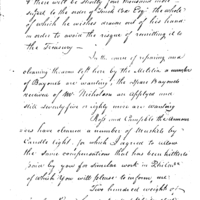 & there will be shortly four thousand more
subject to the order of Tench Coxe Esqr the whole
of which he wishes drawn out of his hands
in order to avoid the risque of remitting it to
the Treasury —
In the mean of repairing and
cleaning the arms left here by the Militia a number
of Bayonets are wanting the spare Bayonets
receiv'd of Mr Nicholson are applyed and
still seventy five or eighty more are wanting
Ross and Campble the armourers
have cleaned a number of Muskets by
Candle light, for which I agreed to return
the same compensation that has been hitherto
paid by you for similar work in Philada
of which You will please to inform me
Two hundred weight of